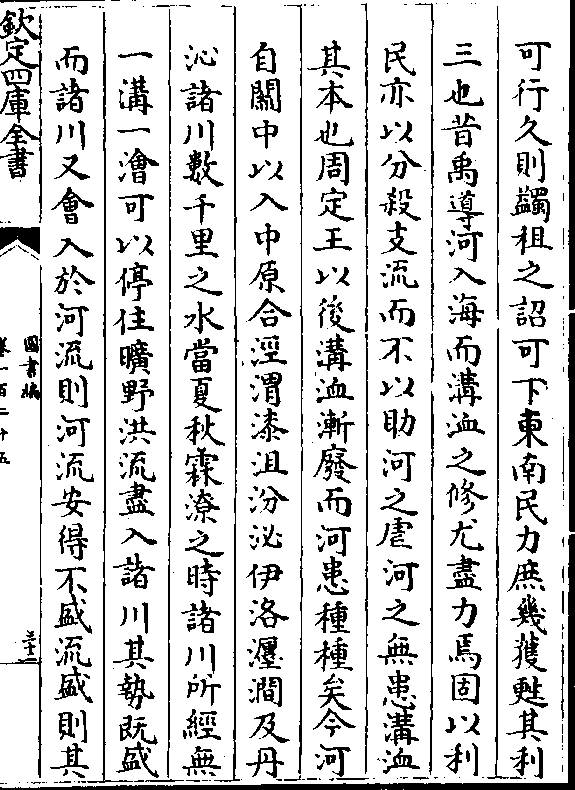 可行久則蠲租之詔可下東南民力庶幾獲甦其利
三也昔禹導河入海而溝洫之修尤盡力焉固以利
民亦以分殺支流而不以助河之虐河之無患溝洫
其本也周定王以後溝洫漸廢而河患種種矣今河
自關中以入中原合涇渭漆沮汾泌伊洛瀍澗及丹
沁諸川數千里之水當夏秋霖潦之時諸川所經無
一溝一澮可以停住曠野洪流盡入諸川其勢既盛
而諸川又會入於河流則河流安得不盛流盛則其
欽定四庫全書
圖書編
卷一百二十五